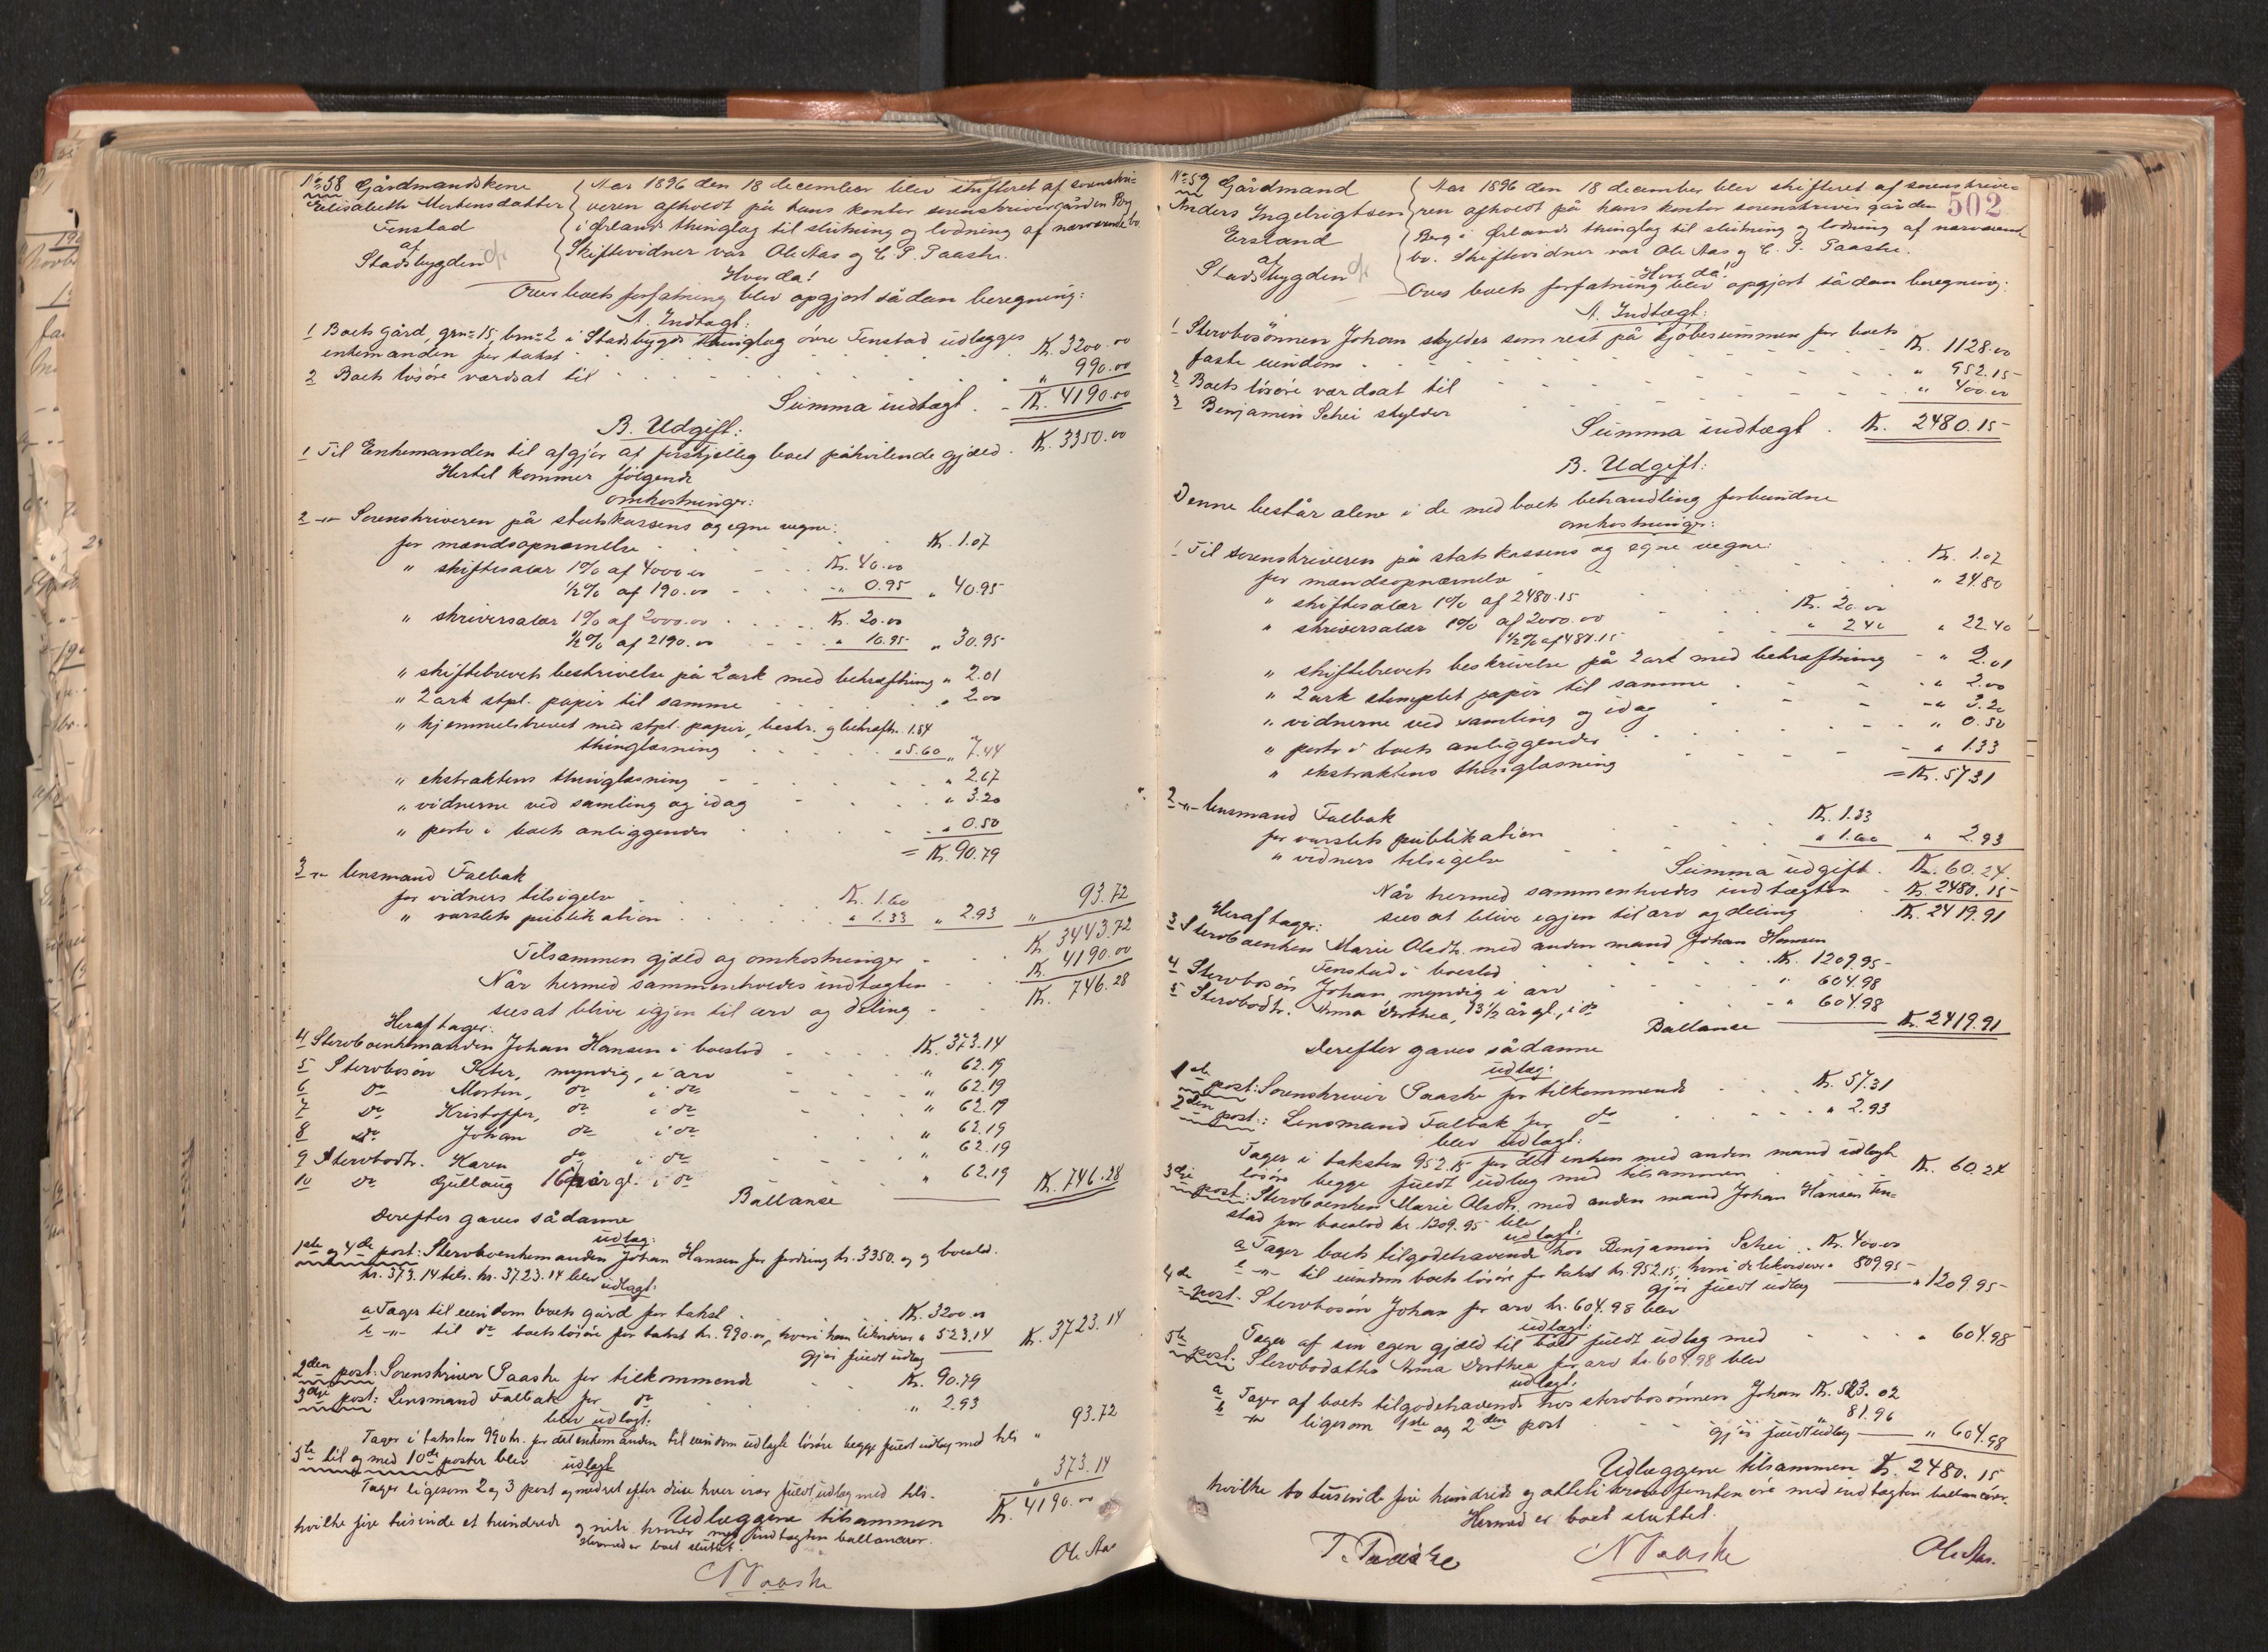 No 58 Gårdmandskone
Elisabeth Mortensdatter
Fenstad
af
Stadsbygden
Aar 1896 den 18 december blev skifteret af sorenskri-
veren afholdt på hans kontor sorenskrivergården Berg
i Ørlands thinglag til slutning og lodning af nærværende bo.
Skiftevidner var Ole Aas og C. P. Paaske.
Hvorda!
Over boets forfatning blev opgjort sådan beregning:
A. Indtægt:
1 Boets gård, grn= 15, brn= 2 i Stadsbygds thinglag øvre Fenstad udlægges
enkemanden for takst Kr. 3200.00
2 Boets løsøre værdsat til " 990.00
Summa indtægt. Kr. 4190.00
B. Udgift:
1 Til Enkemanden til afgjør af forskjellig boet påhvilende gjæld. Kr. 3350.00
Hertil kommer følgende
omkostninger:
2 -"- Sorenskriveren på statskassens og egne vegne:
for mændsopnævnelse Kr. 1.07
" skiftesalær 1% af 4000.00 Kr. 40.00
½% af 190.00 -"- 0.95 " 40.95
" skriversalær 1% af 2000.00 Kr. 20.00
½% af 2190.00 " 10.95 " 30.95
" skiftebrevets beskrivelse på 2 ark med bekræftning " 2.01
" 2 ark stpl. papir til samme " 2.00
" hjemmelsbrevet med stpl. papir, beskr. og bekræftn. 1.84
thinglæsning " 5.60 " 7.44
" ekstraktens thinglæsning " 2.67
" vidnerne ved samling og idag " 3.20
" porto i boets anliggender " 0.50
= Kr. 90.79
3 -"- lensmand Falbak
for vidners tilsigelse Kr. 1.60
" varslets publikation " 1.33 " 2.93 " 93.72
Tilsammen gjæld og omkostninger Kr. 3443.72
Når hermed sammenholdes indtægten Kr. 4190.00
sees at blive igjen til arv og deling Kr. 746.28
Heraf tager:
4 Stervboenkemanden Johan Hansen i boeslod Kr. 373.14
5 Stervbosøn Peter, myndig, i arv " 62.19
6 do Morten, do i do " 62.19
7 do Kristoffer, do i do " 62.19
8 do Johan do i do " 62.19
9 Stervbodtr. Karen do i do " 62.19
10 do Gullaug 16 år gl. i do " 62.19 Kr. 746.28
Ballanse
Derefter gaves sådanne
udlæg:
1ste og 4de post: Stervboenkemanden Johan Hansen for fordring kr. 3350.00 og boeslod.
kr. 373.14 tils. kr. 3723.14 blev
udlagt:
a Tager til eiendom boets gård for takst Kr. 3200.00
b -"- til do boets løsøre for takst kr. 990.00, hvori han likviderer " 523.14 Kr. 3723.14
gjør fuldt udlæg
2den post: Sorenskriver Paaske for tilkommende Kr. 90.79
3dje post: Lensmand Falbak for do " 2.93
blev udlagt:
Tager i taksten 990 kr. for det enkemanden til eiendom udlagte løsøre begge fuldt udlæg med tils " 93.72
5te til og med 10de poster blev
udlagt
Tager ligesom 2 og 3 post og nædst efter disse hver især fuldt udlæg med tils. " 373.14
Udlæggene tilsammen Kr. 4190.00
hvilke fire tusinde et hundrede og niti kroner med indtægten ballancerer.
Hermed er boet sluttet.
N Paaske
Ole Aas
502
No 59 Gårdmand
Anders Ingebrigtsen
Ersland
af
Stadsbygden
Aar 1896 den 18 december blev skifteret af sorenskrive-
ren afholdt på hans kontor sorenskrivergården
Berg i Ørlands thinglag til slutning og lodning af nærværende
bo. Skiftevidner var Ole Aas og C. P. Paaske.
Hvorda!
Over boets forfatning blev opgjort sådan beregning:
A. Indtægt:
1 Stervbosønnen Johan skylder som rest på kjøbesummen for boets
faste eiendom Kr. 1128.00
2 Boets løsøre værdsat til " 952.15
3 Benjamin Schei skylder " 400.00
Summa indtægt. Kr. 2480.15
B. Udgift:
Denne består alene i de med boets behandling forbundne
omkostninger:
1 Til sorenskriveren på statskassens og egne vegne:
for mændsopnævnelse Kr. 1.07
" skiftesalær 1% af 2480.15 " 24.80
" skriversalær 1% af 2000.00 Kr. 20.00
½% af 480.15 " 2.40 " 22.40
" skiftebrevets beskrivelse på 2 ark med bekræftning " 2.01
" 2 ark stemplet papir til samme " 2.00
" vidnerne ved samling og idag " 3.20
" porto i boets anliggender " 0.50
" ekstraktens thinglæsning " 1.33
= Kr. 57.31
2 -"- lensmand Falbak
for varslets publikation Kr. 1.33
" vidners tilsigelse " 1.60 " 2.93
Summa udgift. Kr. 60.24.
Når hermed sammenholdes indtægten Kr. 2480.15
sees at blive igjen til arv og deling Kr. 2419.91
Heraf tager:
3 Stervboenken Marie Olsdtr. med anden mand Johan Hansen
Fenstad i boeslod Kr. 1209.95
4 Stervbosøn Johan myndig i arv " 604.98
5 Stervbodtr. Anna Dorthea, 13½ år gl., i do " 604.98
Ballanse Kr. 2419.91
Derefter gaves sådanne
udlæg:
1ste post: Sorenskriver Paaske for tilkommende Kr. 57.31
2den post: Lensmand Falbak for do " 2.93
blev udlagt:
Tager i taksten 952.15 for det enken med anden mand udlagte
løsøre begge fuldt udlæg med tilsammen Kr. 60.24
3dje post: Stervboenken Marie Olsdtr. med anden mand Johan Hansen Fen-
stad for boeslod kr. 1209.95 blev
udlagt:
a Tager boets tilgodehavende hos Benjamin Schei Kr. 400.00
b -"- til eiendom boets løsøre for takst kr. 952.15, hvori de likviderer " 809.95
gjør fuldt udlæg " 1209.95
4de post: Stervbosøn Johan for arv kr. 604.98 blev
udlagt:
Tager af sin egen gjæld til boet fuldt udlæg med " 604.98
5te post: Stervbodatter Anna Dorthea for arv kr. 604.98 blev
udlagt:
a Tager af boets tilgodehavende hos stervbosønnen Johan Kr. 523.02
b -"- ligesom 1ste og 2den post " 81.96
gjør fuldt udlæg " 604.98
Udlæggene tilsammen Kr. 2480.15
hvilke to tusinde fire hundrede og otteti kroner femten øre med indtægten ballancerer.
Hermed er boet sluttet.
P. Paaske
N Paaske
Ole Aas.